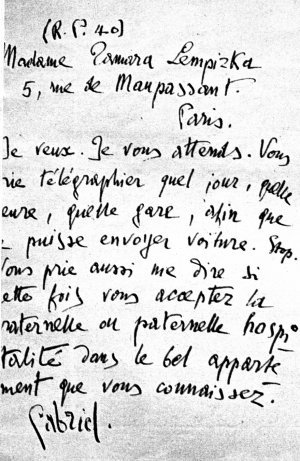 (R. P. 40)
Madame Tamara Lempizka
5, rue de Maupassant.
Paris.
Je veux. Je vous attends. Vous
rie télégraphier quel jour, quelle
eure, quelle gare, afin que
puisse envoyer voiture. Stop.
Vous prie aussi me dire si
ette fois vous acceptez la
maternelle ou paternelle hospi
talité dans le bel apparte
ment que vous connaissez.
Gabriel.